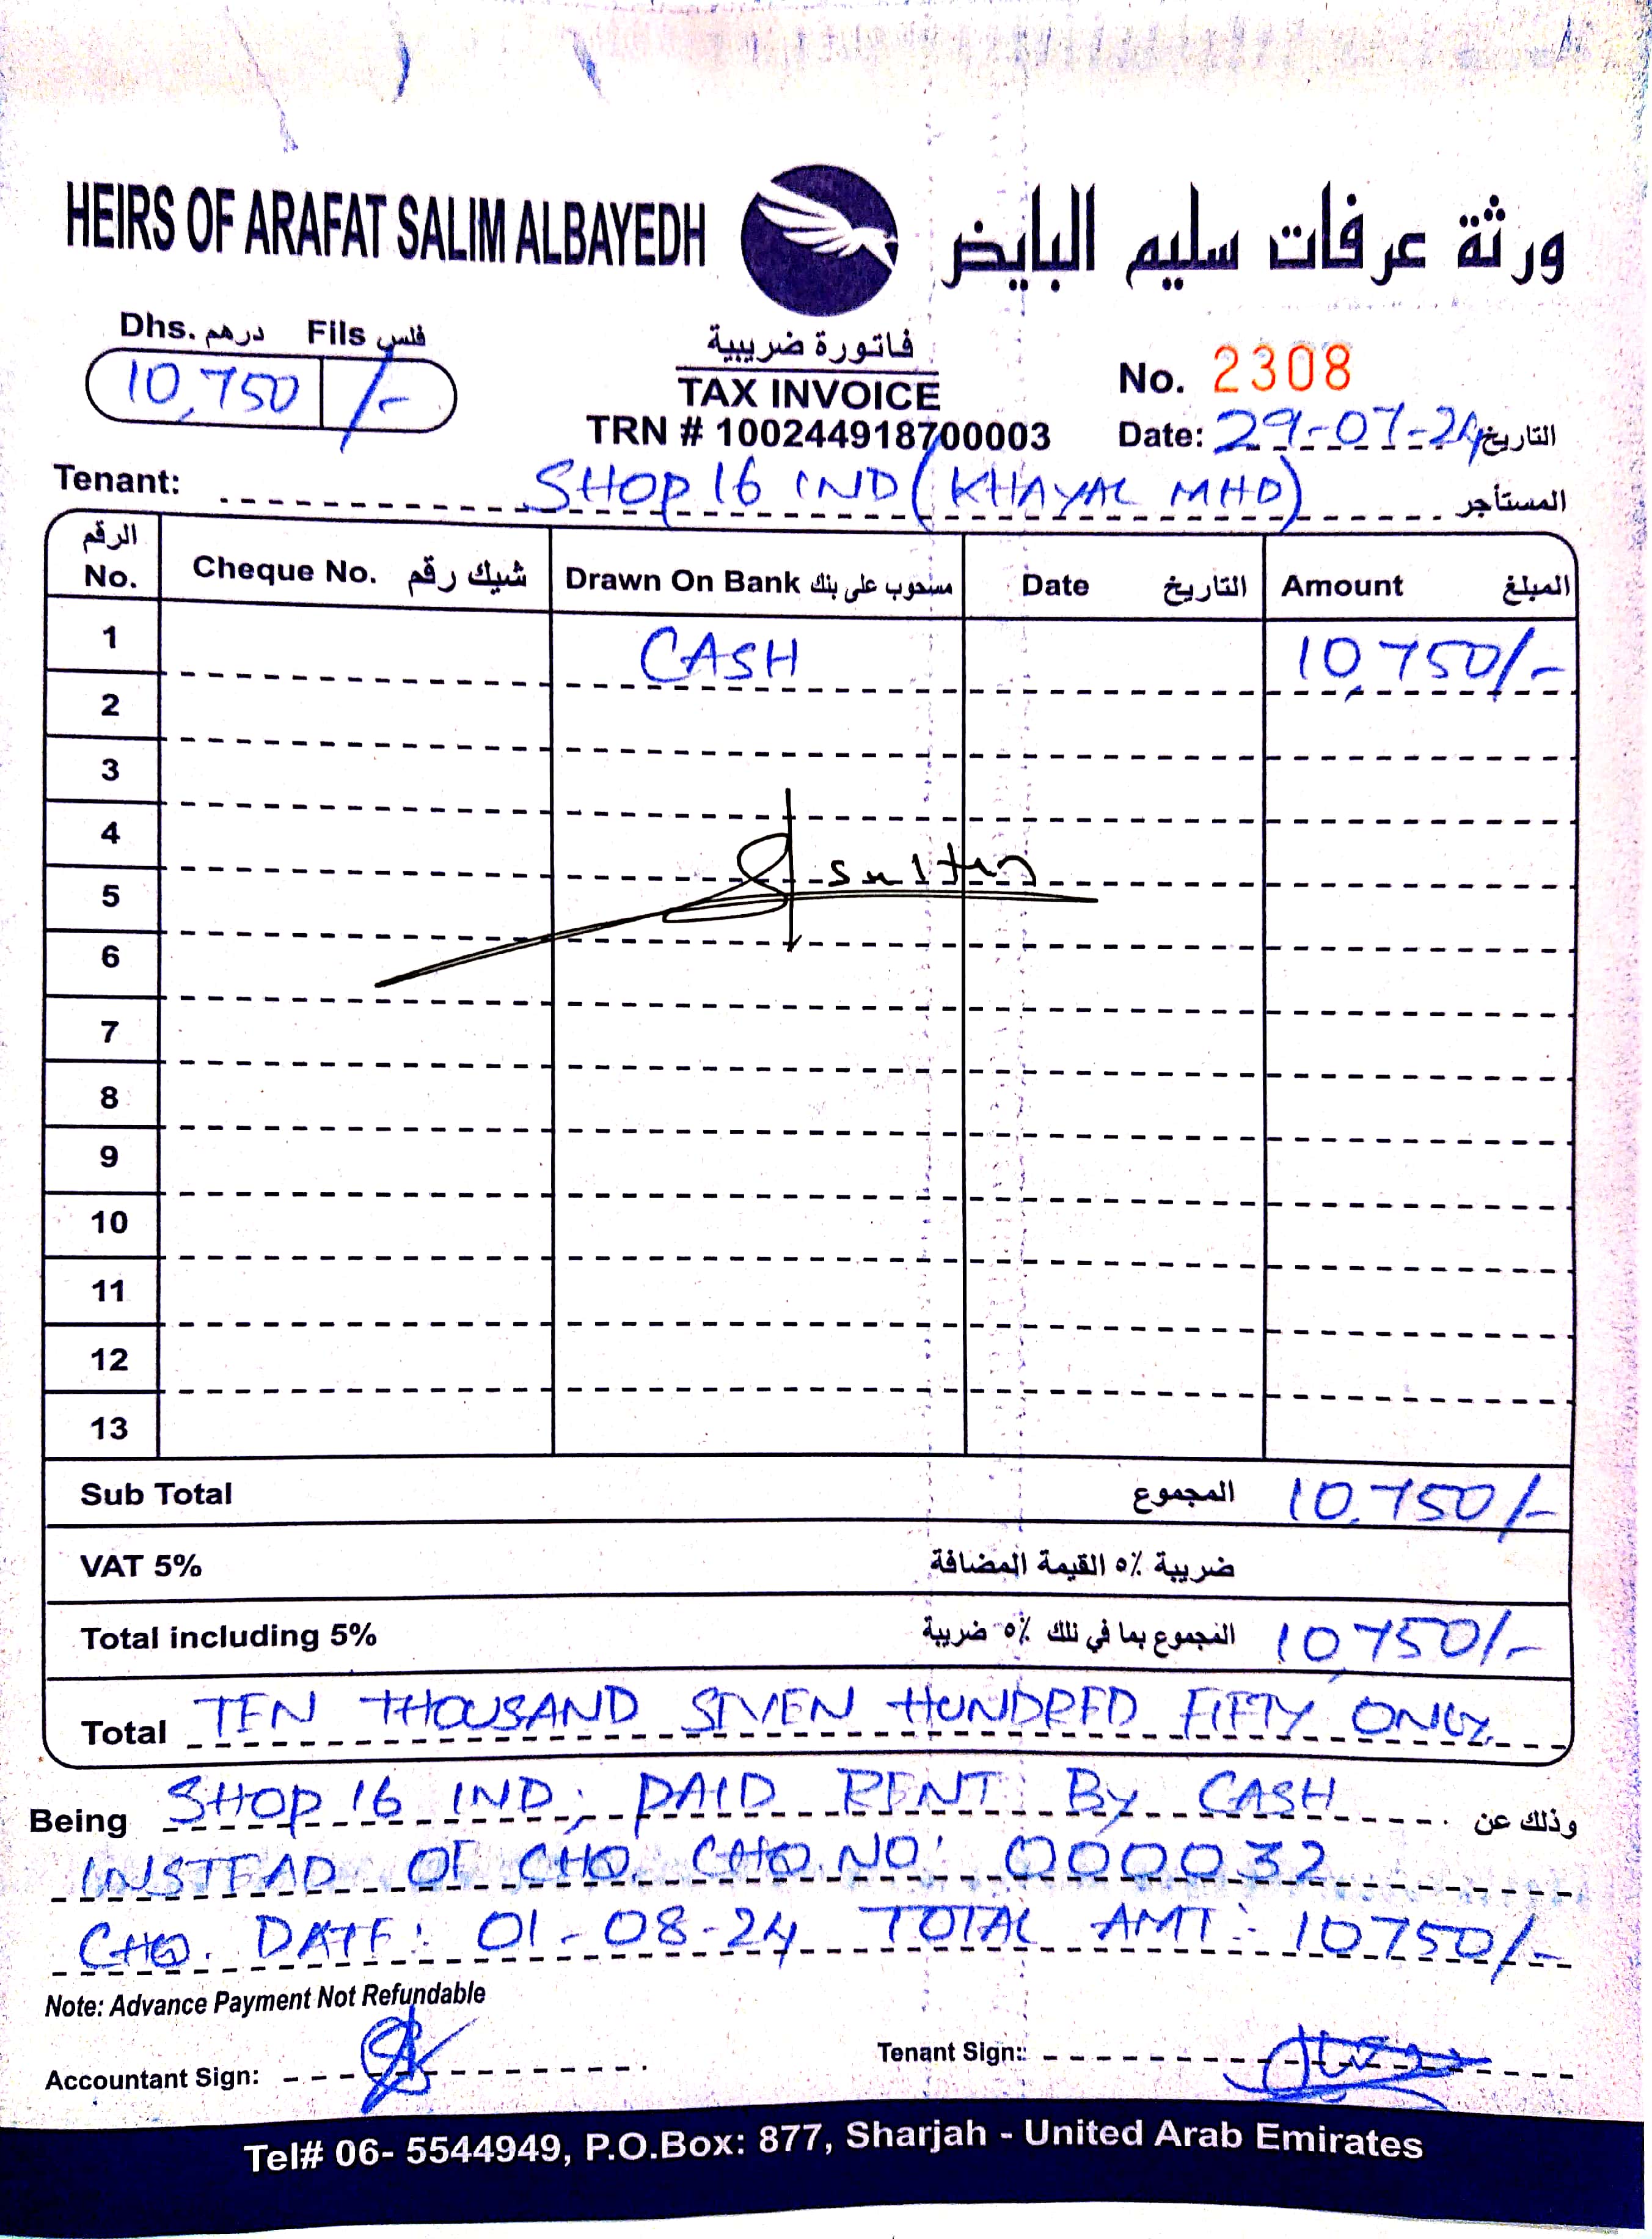 HEIRS OF ARAFAT SALIM ALBAYEDH ورثة عرفات سليم البايض
Dhs. درهم Fils فلس
10,750 /-
فاتورة ضريبية
TAX INVOICE
TRN # 100244918700003
No. 2308
Date: 29-07-24 التاريخ
Tenant: SHOP 16 IND (KHAYAL MHD) المستأجر
الرقم No. Cheque No. شيك رقم Drawn On Bank مسحوب على بنك Date التاريخ Amount المبلغ
1 CASH 10,750/-
2
3
4
sultan
5
6
7
8
9
10
11
12
13
Sub Total المجموع 10,750/-
VAT 5% ضريبة ٥٪ القيمة المضافة
Total including 5% المجموع بما في ذلك ٥٪ ضريبة 10,750/-
Total TEN THOUSAND SEVEN HUNDRED FIFTY ONLY
Being SHOP 16 IND, PAID RENT BY CASH وذلك عن
INSTEAD OF CHQ. CHQ.NO: 000032
CHQ. DATE: 01-08-24 TOTAL AMT:- 10750/-
Note: Advance Payment Not Refundable
Accountant Sign: Tenant Sign::
Tel# 06- 5544949, P.O.Box: 877, Sharjah - United Arab Emirates